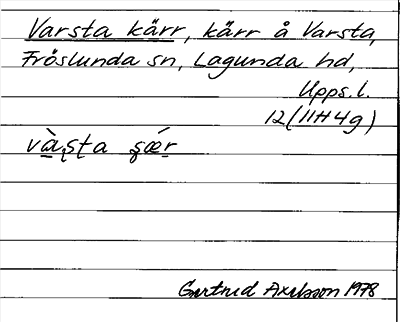 Varsta kärr, kärr å Varsta,
Fröslunda sn, Lagunda hd,
Upps. l.
12 (11H 4g)
Gertrud Axelsson 1978